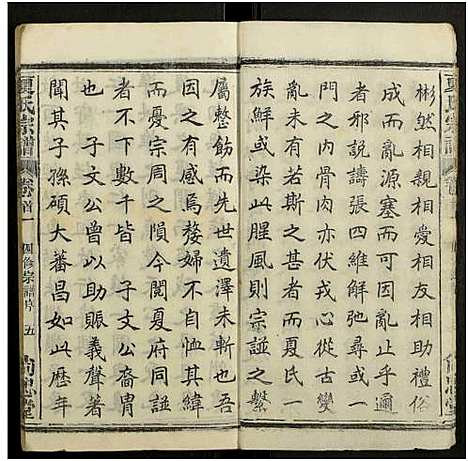 夏氏宗譜
彬然相親相愛相友相助禮俗
成而亂源塞而可因亂止乎邇
者邪說譸張四維解弛尋戈操
門之內骨肉亦伏戎心從古變
亂未有若斯之甚而夏氏一
族鮮或染此腥風則宗誼之繫
屬整飭而先世遺澤未斬也吾
因之有感焉嫠婦不自恤其緯
而憂宗周之隕今閱夏府同譜
者不下數千皆 子文公裔胄
也 子文公曾以助賑義聲著
聞其子孫碩大蕃昌如此歷年
夏氏宗譜 卷首 四修宗譜序 五